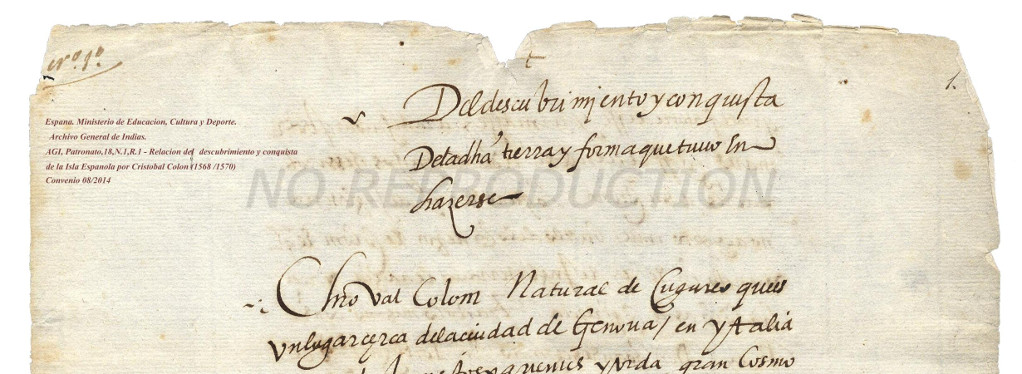 nro. 1o.
1.
Espana. Ministerio de Educacion, Cultura y Deporte.
Archivo General de Indias.
AGI, Patronato,18,N.1,R.1 - Relacion del descubrimiento y conquista
de la Isla Espanola por Cristobal Colon (1568 /1570)
Convenio 08/2014
NO REPRODUCTION
Del descubrimiento y conquista
De la dha tierra y forma que tuuo In
hazerse
Chrõval Colom Natural de Cugureo que es
vn lugar çerca de la ciudad de Genoua / en ytalia
gran Cosmo